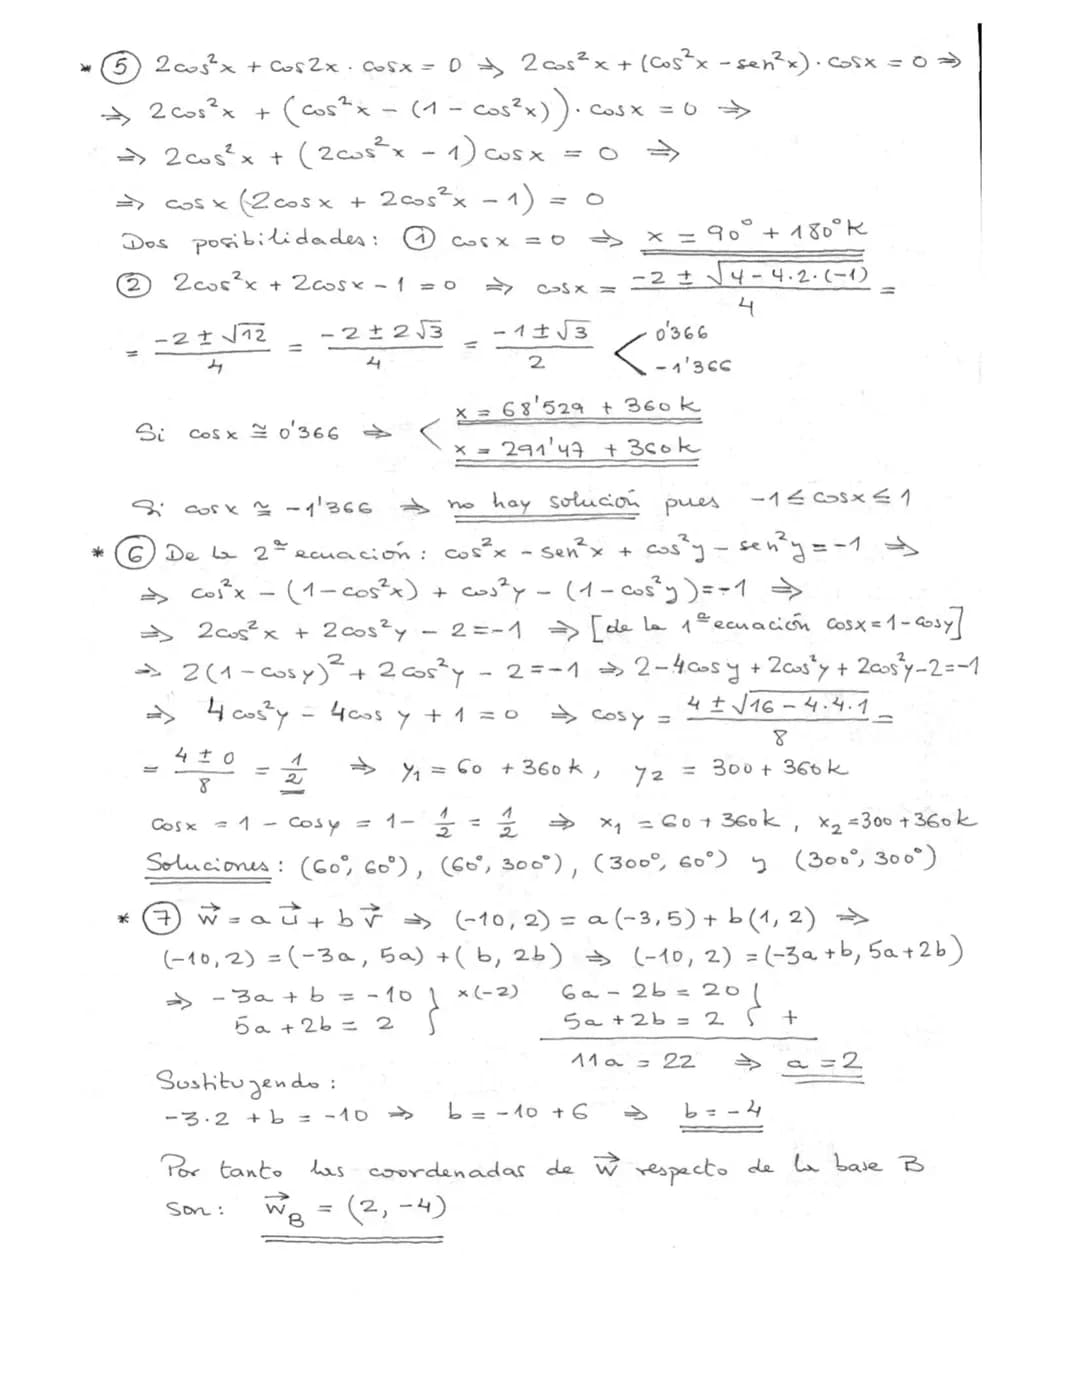 * ⑤ 2cos²x + cos2x · cosx = 0 ⇒ 2cos²x + (cos²x - sen²x) · cosx = 0 ⇒
⇒ 2cos²x + (cos²x - (1 - cos²x)) · cosx = 0 ⇒
⇒ 2cos²x + (2cos²x - 1) cosx = 0 ⇒
⇒ cosx (2cosx + 2cos²x - 1) = 0
Dos posibilidades: ① cosx = 0 ⇒ x = 90° + 180°K
② 2cos²x + 2cosx - 1 = 0 ⇒ cosx = (-2 ± √(4 - 4·2·(-1)))/4 =
= (-2 ± √12)/4 = (-2 ± 2√3)/4 = (-1 ± √3)/2 < 0'366
-1'366
Si cosx ≅ 0'366 ⇒ < x = 68'529 + 360k
x = 291'47 + 360k
Si cosx ≅ -1'366 ⇒ no hay solución pues -1 ≤ cosx ≤ 1
* ⑥ De la 2ª ecuación: cos²x - sen²x + cos²y - sen²y = -1 ⇒
⇒ cos²x - (1 - cos²x) + cos²y - (1 - cos²y) = -1 ⇒
⇒ 2cos²x + 2cos²y - 2 = -1 ⇒ [de la 1ª ecuación cosx = 1 - cosy]
⇒ 2(1 - cosy)² + 2cos²y - 2 = -1 ⇒ 2 - 4cosy + 2cos²y + 2cos²y - 2 = -1
⇒ 4cos²y - 4cosy + 1 = 0 ⇒ cosy = (4 ± √(16 - 4·4·1))/8 =
= (4 ± 0)/8 = 1/2 ⇒ y₁ = 60 + 360k, y₂ = 300 + 360k
Cosx = 1 - cosy = 1 - 1/2 = 1/2 ⇒ x₁ = 60 + 360k, x₂ = 300 + 360k
Soluciones: (60°, 60°), (60°, 300°), (300°, 60°) y (300°, 300°)
* ⑦ w⃗ = a u⃗ + b v⃗ ⇒ (-10, 2) = a(-3, 5) + b(1, 2) ⇒
(-10, 2) = (-3a, 5a) + (b, 2b) ⇒ (-10, 2) = (-3a + b, 5a + 2b)
⇒ -3a + b = -10 } ×(-2) 6a - 2b = 20 }
5a + 2b = 2 } 5a + 2b = 2 } +
11a = 22 ⇒ a = 2
Sustituyendo:
-3·2 + b = -10 ⇒ b = -10 + 6 ⇒ b = -4
Por tanto las coordenadas de w⃗ respecto de la base B
son: w⃗_B = (2, -4)